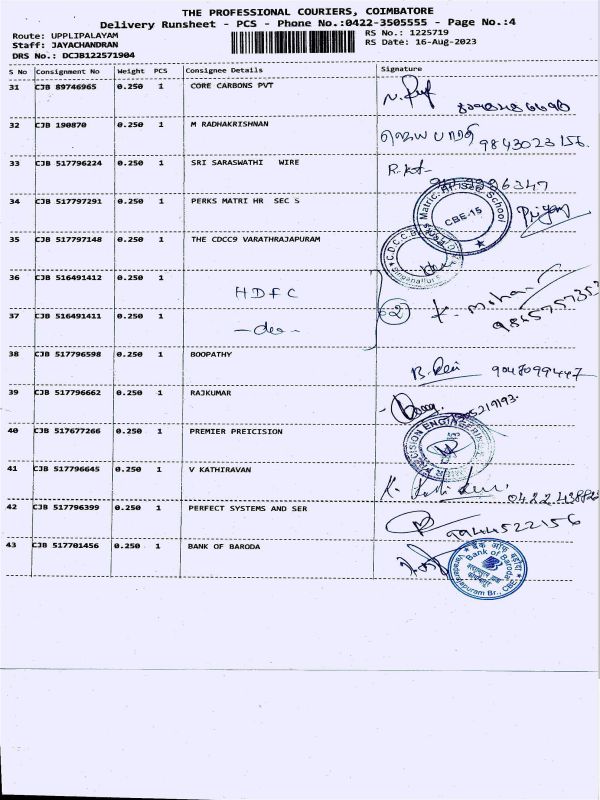 THE PROFESSIONAL COURIERS, COIMBATORE
Delivery Runsheet - PCS - Phone No.:0422-3505555 - Page No.:4
Route: UPPLIPALAYAM
RS No.: 1225719
Staff: JAYACHANDRAN
RS Date: 16-Aug-2023
DRS No.: DCJB122571904
S No Consignment No Weight PCS Consignee Details Signature
31 CJB 89746965 0.250 1 CORE CARBONS PVT
32 CJB 190870 0.250 1 M RADHAKRISHNAN 9843023156
33 CJB 517796224 0.250 1 SRI SARASWATHI WIRE
34 CJB 517797291 0.250 1 PERKS MATRI HR SEC S Matric. School CBE-15
35 CJB 517797148 0.250 1 THE CDCC9 VARATHRAJAPURAM
36 CJB 516491412 0.250 1 HDFC
37 CJB 516491411 0.250 1 -do- 2 K. Mohan
38 CJB 517796598 0.250 1 BOOPATHY
39 CJB 517796662 0.250 1 RAJKUMAR
40 CJB 517677266 0.250 1 PREMIER PREICISION
41 CJB 517796645 0.250 1 V KATHIRAVAN
42 CJB 517796399 0.250 1 PERFECT SYSTEMS AND SER 9944522156
43 CJB 517701456 0.250 1 BANK OF BARODA
बैंक ऑफ़ बड़ौदा
Bank of Baroda
Varadarajapuram Br., CBE.